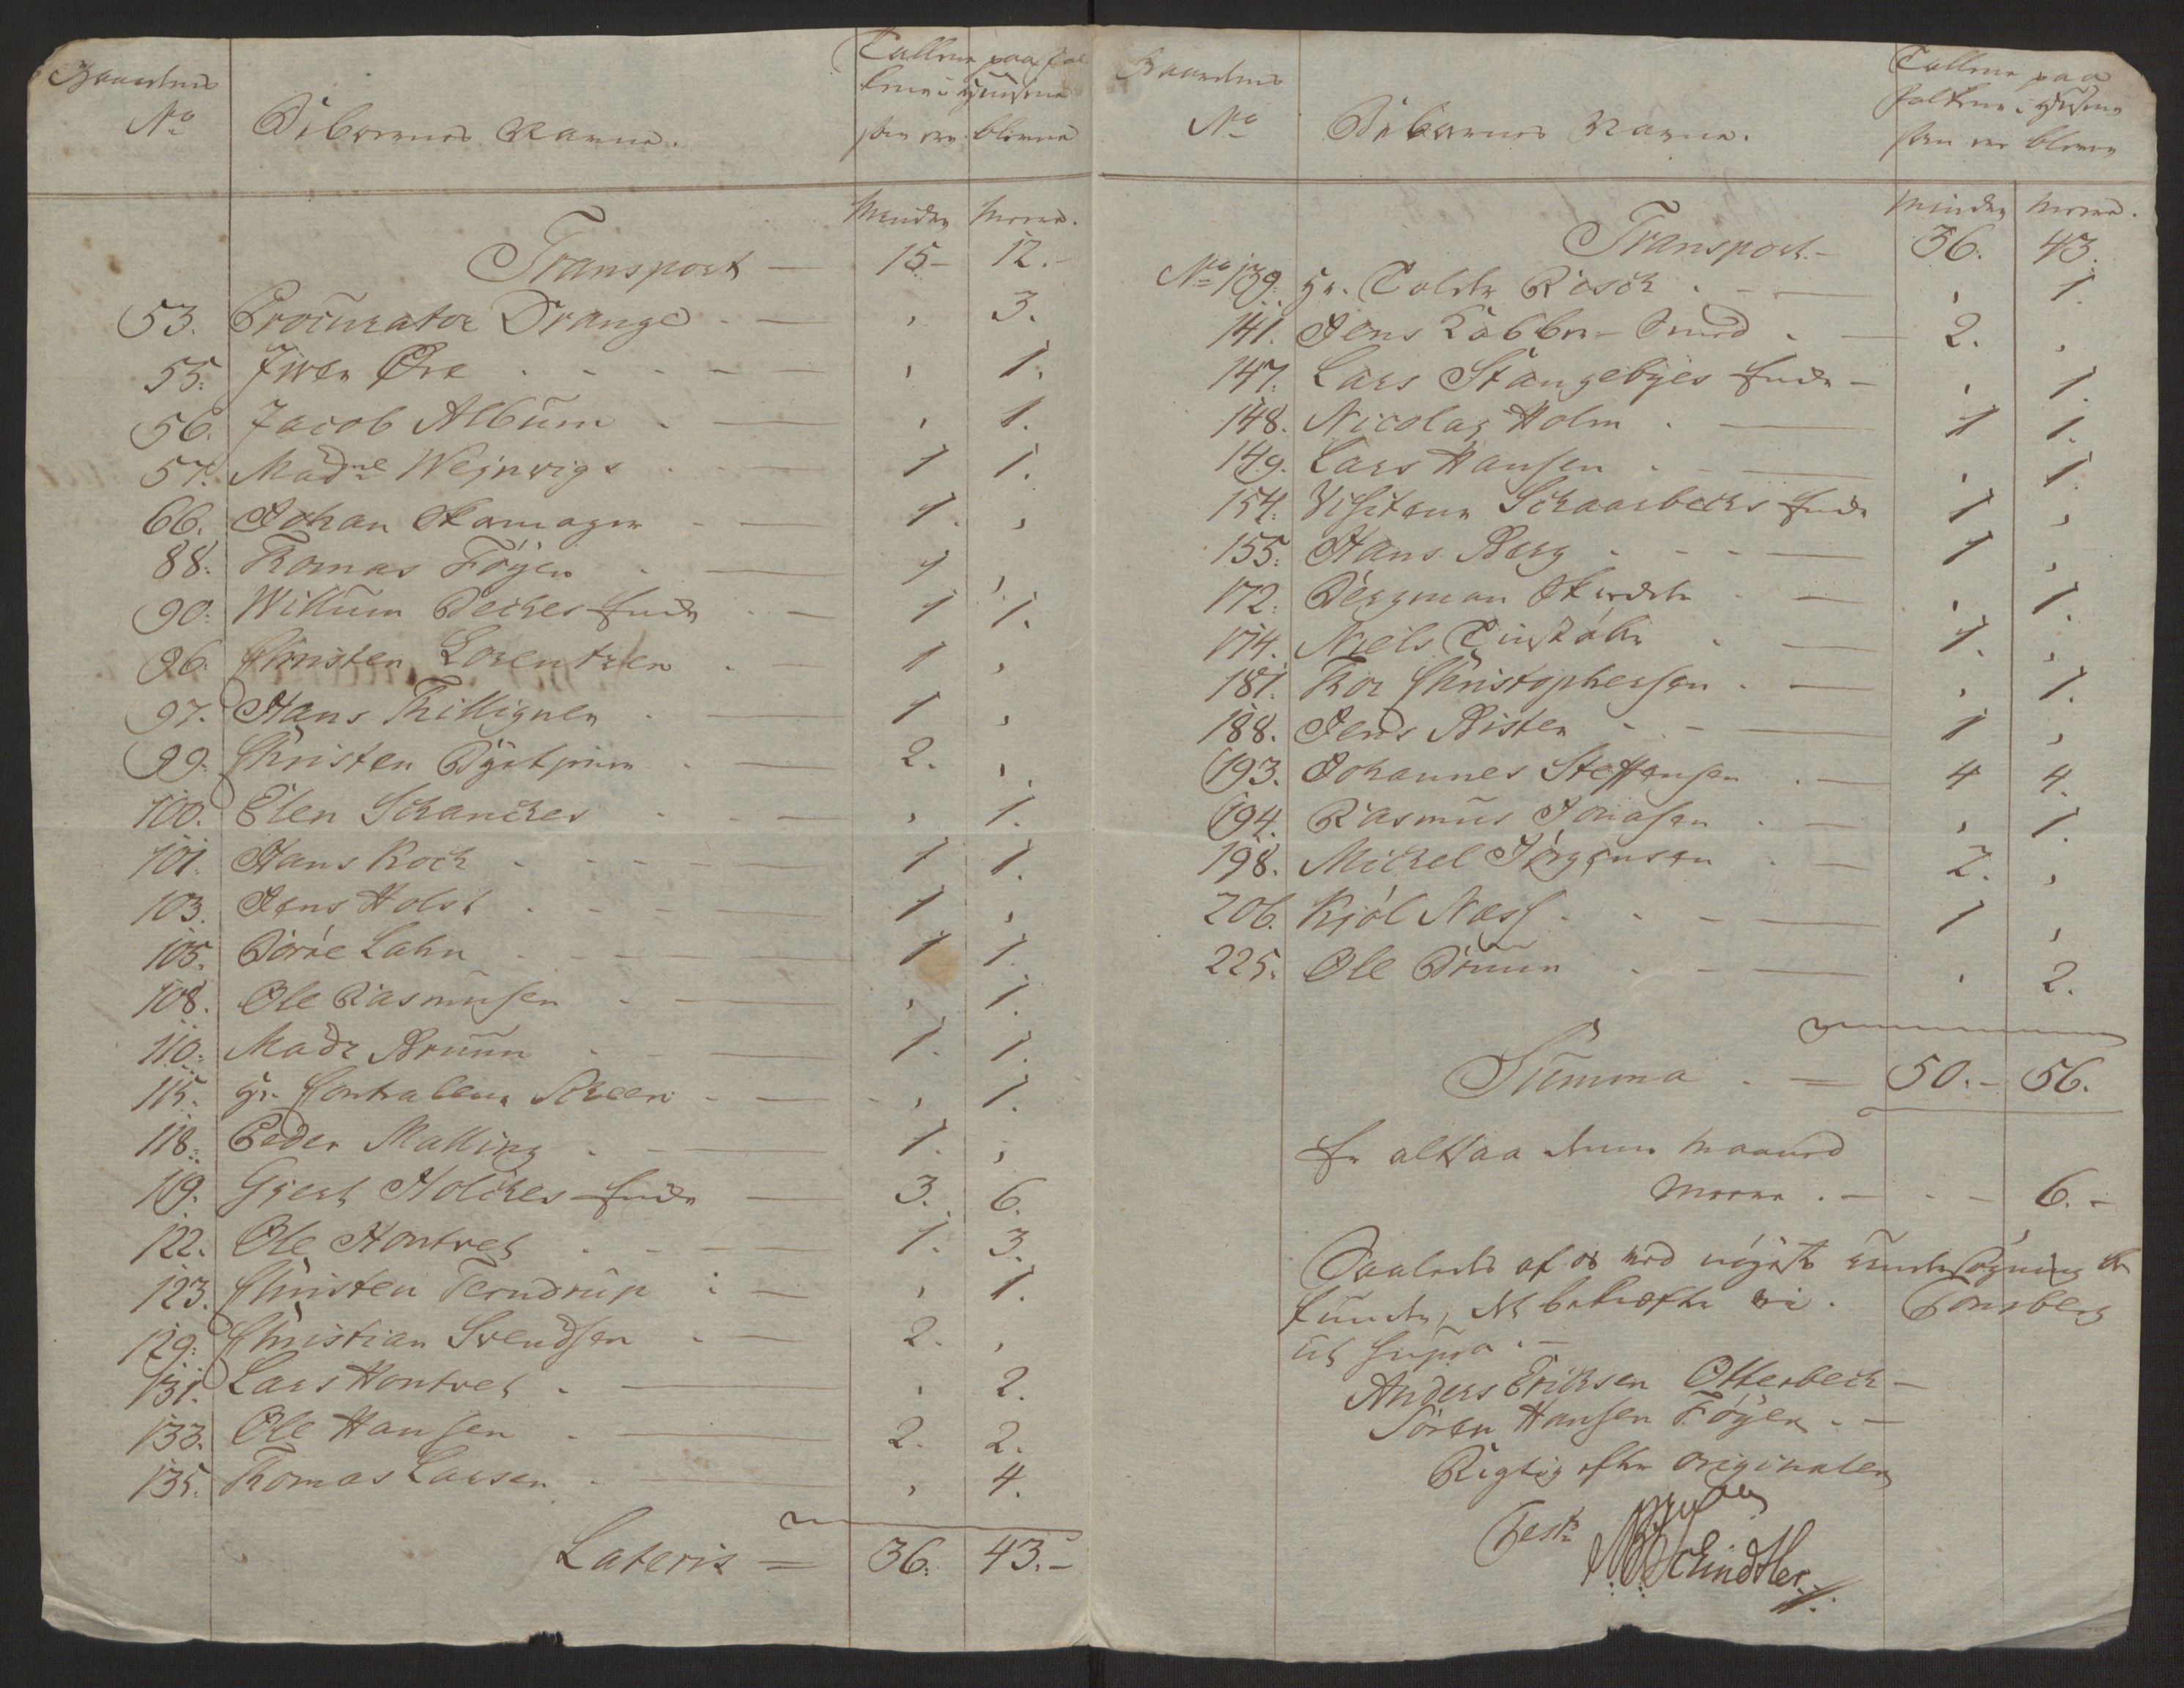 Gaardenes
No
Beboernes Navne.
Tallene paa Fol
kene i Huusene
som ere blevne
Mindre Meere.
Transport — 15 – 12. –
53. Procurator Drange . — , 3.
55. Iver Øre . . . — , 1.
56. Jacob Album . — , 1.
57. Madme Wejnvigs . . — 1 1.
66. Johan Skomager . — 1. ,
88. Thomas Föyen . — 1 ,
90. Willum Beckes Enke . — 1 1.
96. Christen Lorentzen . — 1 ,
97. Hans Thillignen . — 1 ,
99. Christen . — 2. ,
100. Elen Schanckes . . — , 1.
101. Hans Koch . . . — 1 1.
103. Jens Holst . . . — 1 ,
105. Börre Lahn . . — 1 1.
108. Ole Rasmusen . — , 1.
110. Madr Bruun . . — 1. 1.
115. Hr. Contraleur Scheen . — , 1.
118. Peder Malling . — 1. ,
119. Gjert Holckes Enke — 3. 6.
122. Ole Hontvet . . — 1. 3.
123. Christen Terndrup . — , 1.
129. Christian Svendsen . — 2. ,
131. Lars Hontvet . — , 2.
133. Ole Hansen . — 2. 2.
135. Thomas Larsen . — , 4.
Lateris = 36. 43. –
Gaardenes
No
Beboernes Navne.
Tallene paa
Folkene i Husene
som ere blevne
Mindre Meere.
Transport. – 36. 43.
No 139. Hr. Tolder Risöch . — , 1.
141. Jens Kobber-Smed . — 2. ,
147. Lars Stangebÿes Enke – , 1.
148. Nicolay Holm . — 1 1.
149. Lars Hansen . — , 1.
154. Visiteur Schaarbechs Enke 1 ,
155. Hans Berg . . . — 1 ,
172. Bergman — , 1.
174. Niels . — 1. ,
181. Thor Christophersen . — , 1.
188. Jens Risten . . — 1 ,
193. Johannes Steffensen . — 4 4.
194. Rasmus Jonasen . — , 1.
198. Michel Jörgensen . — 2. ,
206. Kjöl Næss . . . — 1 ,
225. Ole Bruun . . — , 2.
Summa . = 50. – 56.
Er altsaa denne Maaned
Meere . – . – 6. –
Saaledes af os ved nöyeste Undersögning be
funden, det bekræfter vi. Tonsberg
ut supra. –
Anders Ericksen Otterbech –
Sören Hansen Föyen . –
Rigtig efter Originalen
Test:
Schindtler